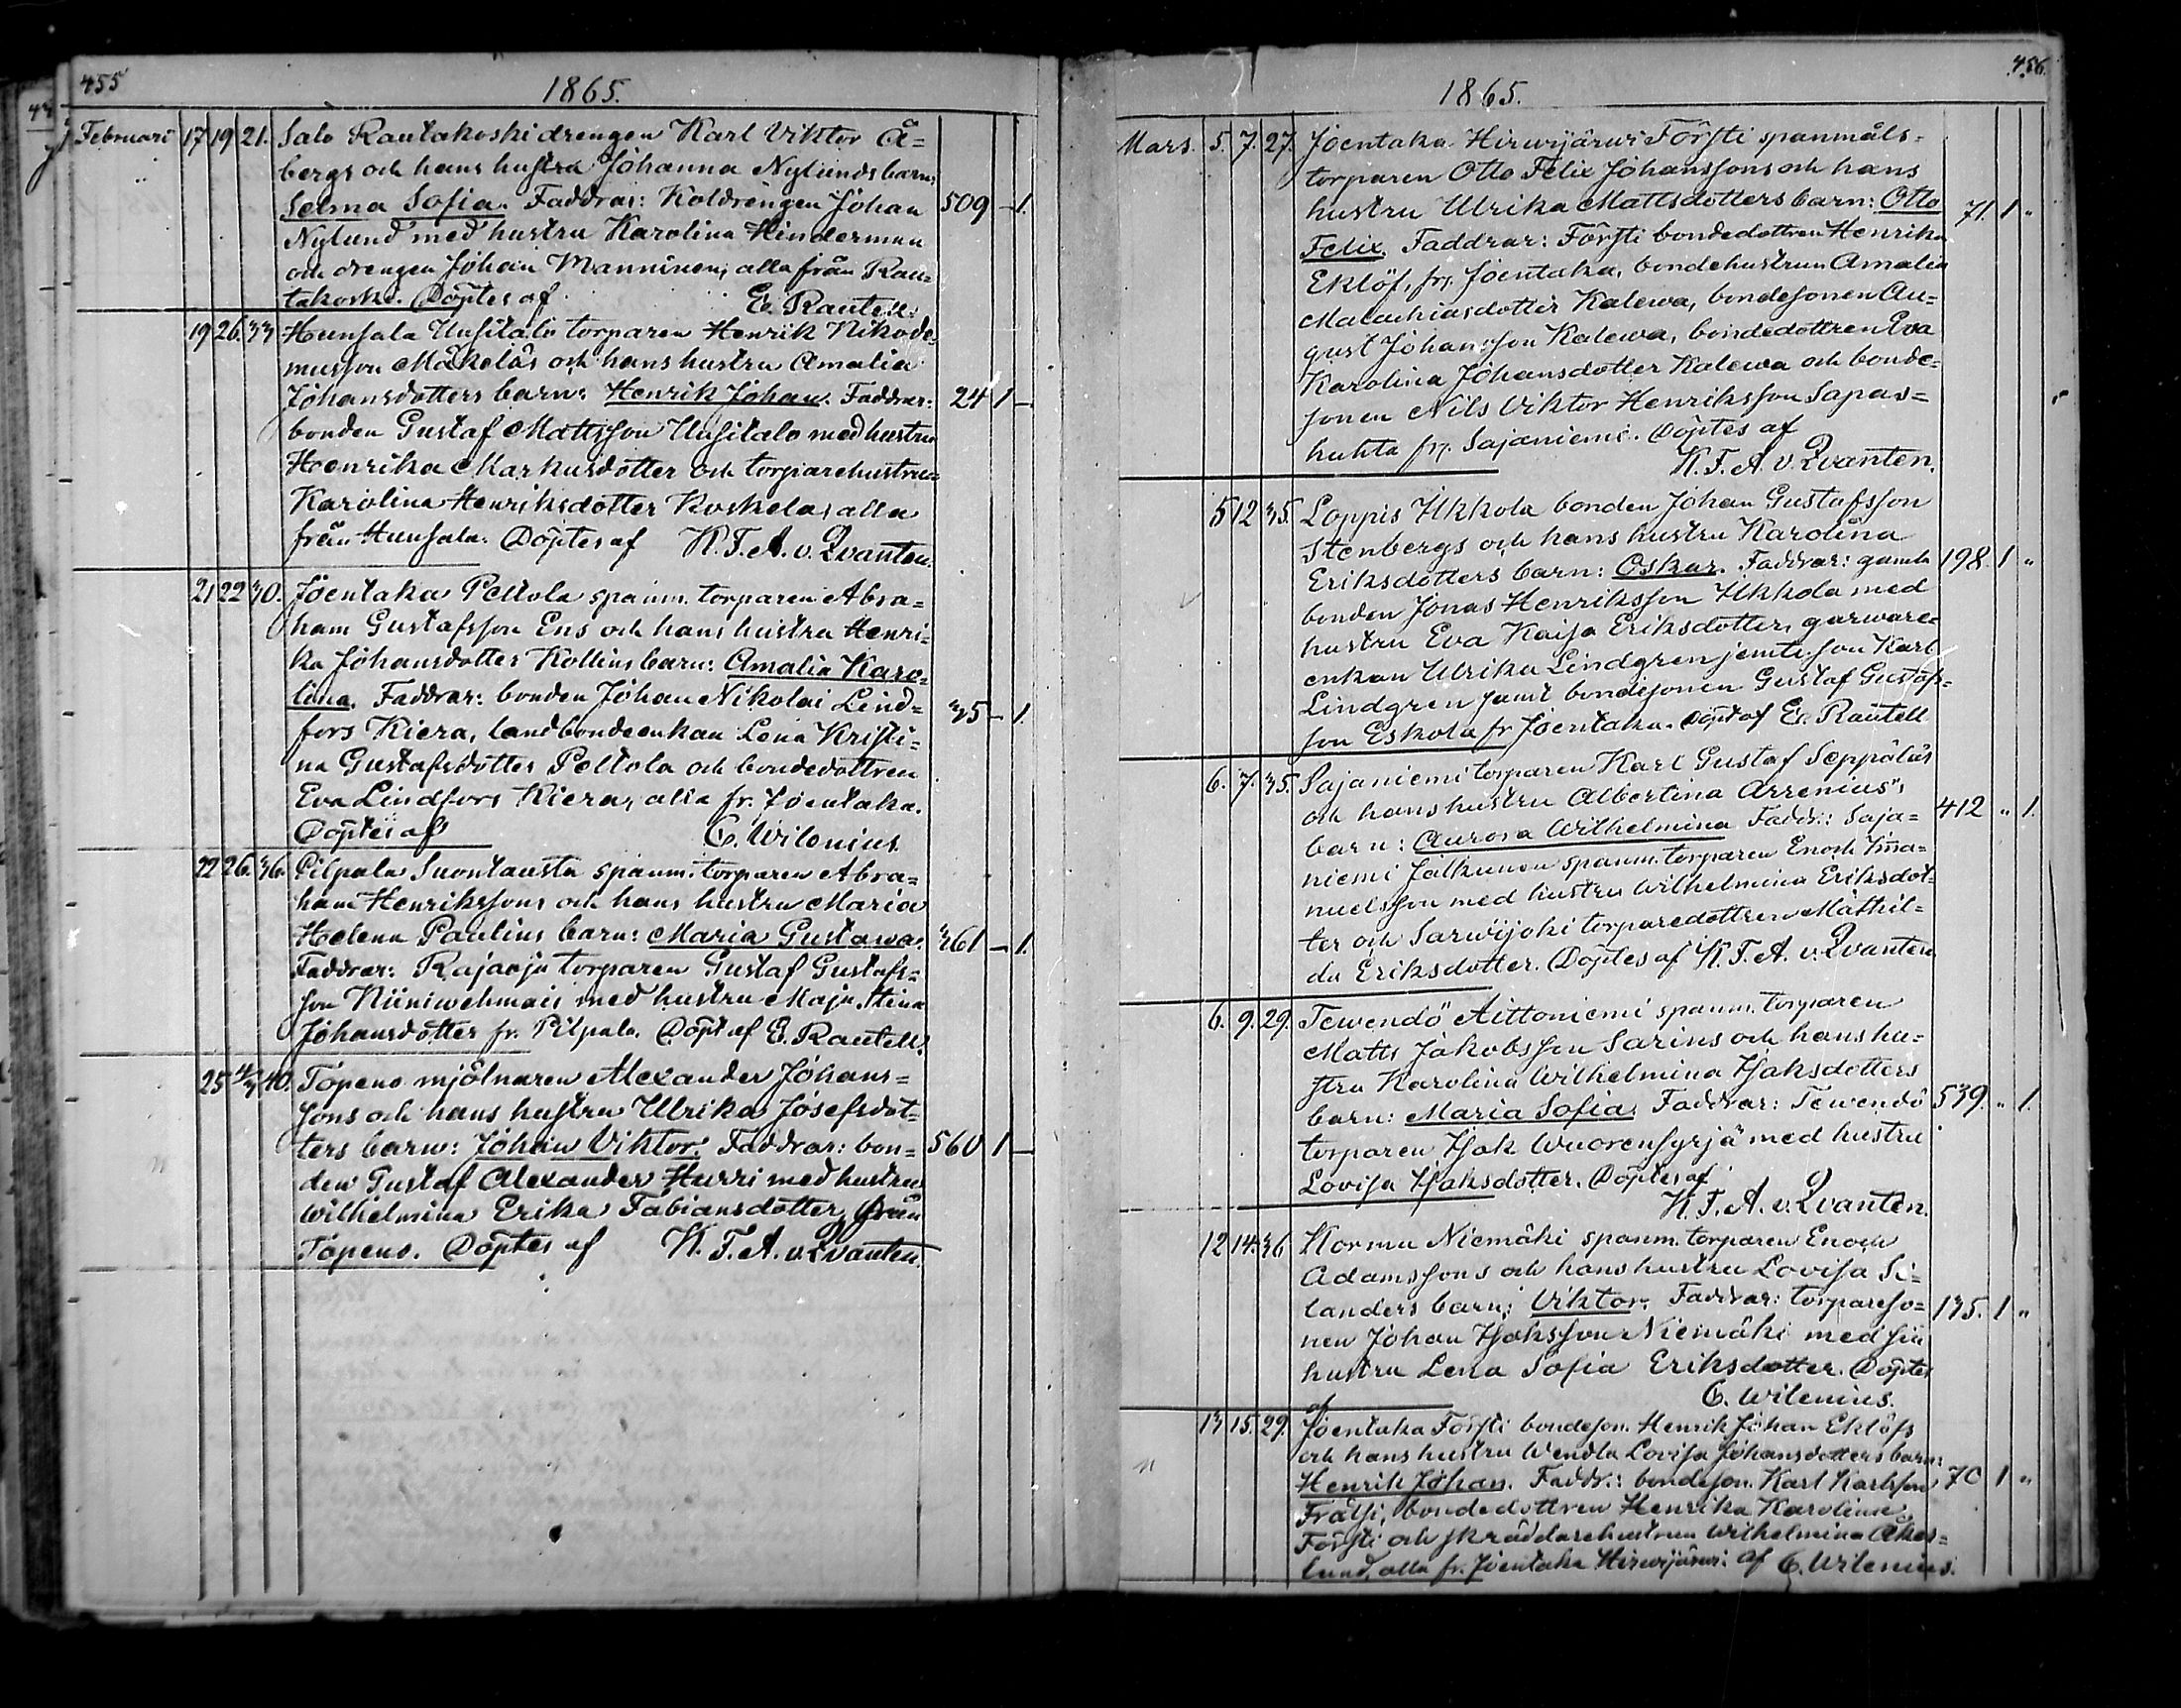 455
1865.
Februari 17 19 21. Salo Rautakoski drengen Karl Viktor Å=
bergs och hans hustru Johanna Nylunds barn:
Selma Sofia. Faddrar: Koldrengen Johan 509 — 1.
Nylund med hustru Karolina Hinderman
och drengen Johan Manninen, alla från Rau=
takoski. Döptes af E. Rautell.
19 26. 33 Hunsala Uusitalo torparen Henrik Nikode=
musson Mäkeläs och hans hustru Amalia
Johansdotters barn: Henrik Johan. Faddrar: 24 1 —
bonden Gustaf Mattsson Uusitalo med hustru
Henrika Markusdotter och torparehustrun
Karolina Henriksdotter Koskela, alla
från Hunsala. Döptes af K. F. A. v. Qvanten.
21 22 30. Joentaka Peltola spanm. torparen Abra=
ham Gustafsson Ens och hans hustru Henri=
ka Johansdotter Kollins barn: Amalia Karo=
lina. Faddrar: bonden Johan Nikolai Lind= 35 — 1.
fors Kiera, landbondeenkan Lena Kristi=
na Gustafsdotter Peltola och bondedottren
Eva Lindfors Kiera, alla fr. Joentaka.
Döptes af C. Wilenius.
22 26. 36. Pilpala Suontausta spanm. torparen Abra=
ham Henrikssons och hans hustru Maria
Helena Paulins barn: Maria Gustava. 361 — 1.
Faddrar: Rajaoja torparen Gustaf Gustafs=
son Niiniwehmais med hustru Maja Stina
Johansdotter fr. Pilpala. Döpt af E. Rautell.
25 4/3 40. Topeno mjölnaren Alexander Johans=
sons och hans hustru Ulrika Josefsdot=
ters barn: Johan Viktor. Faddrar: bon= 560 1 —
den Gustaf Alexander Hurri med hustru
Wilhelmina Erika Fabiansdotter från
Topeno. Döptes af K. F. A. v. Qvanten.
456.
1865.
Mars. 5. 7. 27. Joentaka Hirwijärwi Försti spanmåls=
torparen Otto Felix Johanssons och hans
hustru Ulrika Mattsdotters barn: Otto 71. 1 "
Felix. Faddrar: Försti bondedottren Henrika
Eklöf, frj. Joentaka, bondehustrun Amalia
Malachiasdotter Kalewa, bondesonen Au=
gust Johansson Kalewa, bondedottren Eva
Karolina Johansdotter Kalewa och bonde=
sonen Nils Viktor Henriksson Sapas=
huhta frj. Sajaniemi. Döptes af
K. F. A. v. Qvanten.
5 12 35. Loppis Ukkola bonden Johan Gustafsson
Stenbergs och hans hustru Karolina
Eriksdotters barn: Oskar. Faddrar: gamle 198. 1 "
bonden Jonas Henriksson Ukkola med
hustru Eva Kaisa Eriksdotter, garware=
enkan Ulrika Lindgren jemte son Karl
Lindgren samt bondesonen Gustaf Gustafs=
son Eskola fr Joentaka. Döpt af E. Rautell
6. 7. 35. Sajaniemi torparen Karl Gustaf Seppäläs
och hans hustru Albertina Arrenius"
barn: Aurora Wilhelmina Faddr.: Saja= 412 " 1.
niemi Jalkunen spanm. torparen Enoch Ima=
nuelsson med hustru Wilhelmina Eriksdot=
ter och Sarwijoki torparedottren Mathil=
da Eriksdotter. Döptes af K. F. A. v. Qvanten
6. 9. 29. Tewendö Aittoniemi spanm. torparen
Matts Jakobsson Sarins och hans hu=
stru Karolina Wilhelmina Isaksdotters
barn: Maria Sofia. Faddrar: Tewendö 539. " 1.
torparen Isak Wuorensyrjä med hustru
Lovisa Isaksdotter. Döptes af
K. F. A. v. Qvanten.
12 14. 36 Kormu Niemäki spanm. torparen Enoch
Adamssons och hans hustru Lovisa Se=
landers barn: Viktor. Faddrar: torpareso= 135. 1 "
nen Johan Isaksson Niemäki med sin
hustru Lena Sofia Eriksdotter. Döptes
af C. Wilenius.
13 15. 29. Joentaka Försti bondeson. Henrik Johan Eklöfs
och hans hustru Wendla Lovisa Johansdotters barn:
Henrik Johan. Faddr.: bondeson. Karl Karlsson 70 1 "
Frätsi, bondedottren Henrika Karolina
Försti och skräddarehustrun Wilhelmina Åker=
lund, alla fr. Joentaka Hirwijärwi. af C. Wilenius.